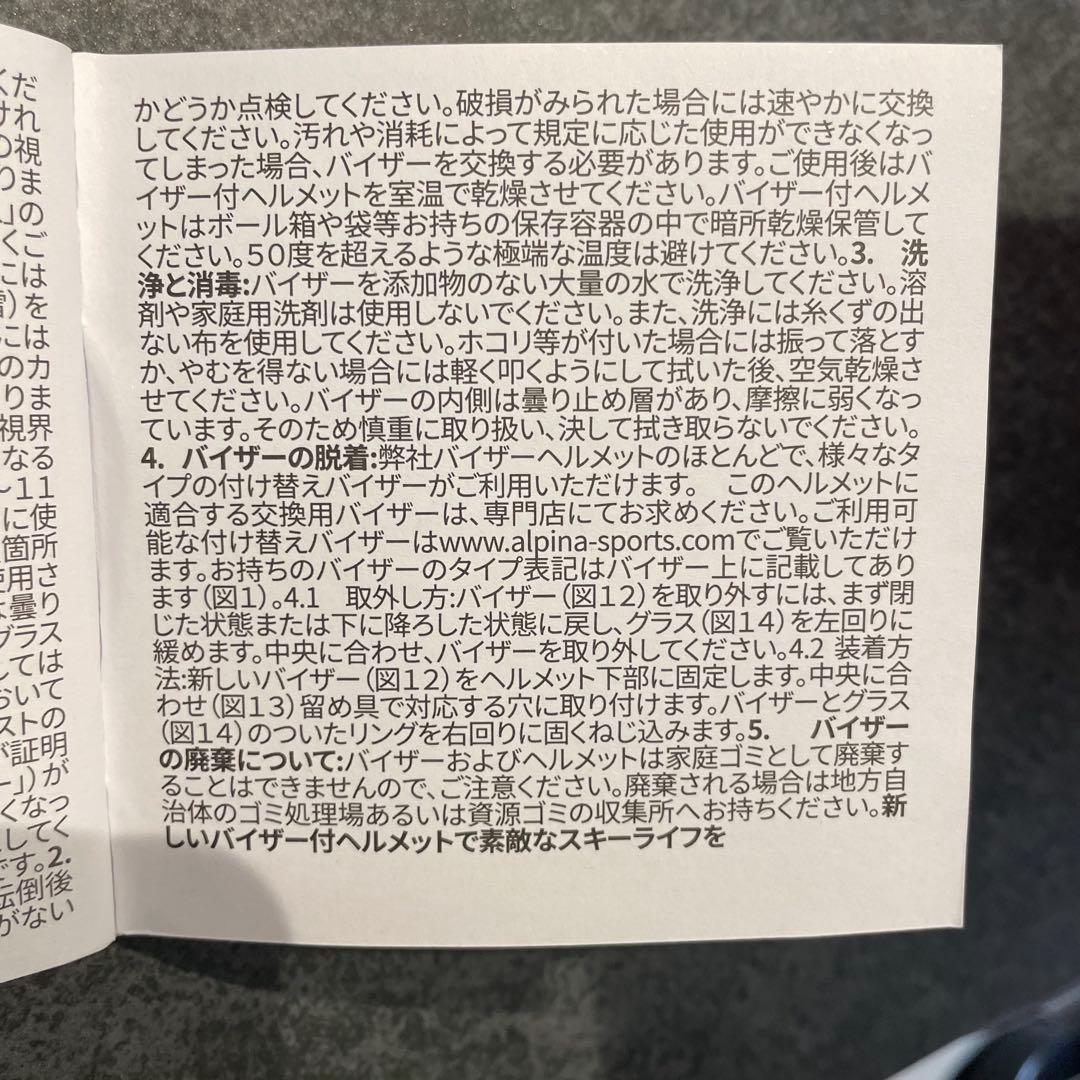 くだ
けれ
の視
りま
」の
くご
には
雪)を
には
のカ
りま
視界
なる
～11
に使
箇所
使用さ
な曇り
グラス
しては
おいて
ストの
が証明
ー」)が
くなっ
してく
です。2.
転倒後
がない
かどうか点検してください。破損がみられた場合には速やかに交換
してください。汚れや消耗によって規定に応じた使用ができなくなっ
てしまった場合、バイザーを交換する必要があります。ご使用後はバ
イザー付ヘルメットを室温で乾燥させてください。バイザー付ヘルメ
ットはボール箱や袋等お持ちの保存容器の中で暗所乾燥保管して
ください。50度を超えるような極端な温度は避けてください。3.　洗
浄と消毒:バイザーを添加物のない大量の水で洗浄してください。溶
剤や家庭用洗剤は使用しないでください。また、洗浄には糸くずの出
ない布を使用してください。ホコリ等が付いた場合には振って落とす
か、やむを得ない場合には軽く叩くようにして拭いた後、空気乾燥さ
せてください。バイザーの内側は曇り止め層があり、摩擦に弱くなっ
ています。そのため慎重に取り扱い、決して拭き取らないでください。
4.　バイザーの脱着:弊社バイザーヘルメットのほとんどで、様々なタ
イプの付け替えバイザーがご利用いただけます。　このヘルメットに
適合する交換用バイザーは、専門店にてお求めください。ご利用可
能な付け替えバイザーはwww.alpina-sports.comでご覧いただけ
ます。お持ちのバイザーのタイプ表記はバイザー上に記載してあり
ます(図1)。4.1　取外し方:バイザー(図12)を取り外すには、まず閉
じた状態または下に降ろした状態に戻し、グラス(図14)を左回りに
緩めます。中央に合わせ、バイザーを取り外してください。4.2 装着方
法:新しいバイザー(図12)をヘルメット下部に固定します。中央に合
わせ(図13)留め具で対応する穴に取り付けます。バイザーとグラス
(図14)のついたリングを右回りに固くねじ込みます。5.　バイザー
の廃棄について:バイザーおよびヘルメットは家庭ゴミとして廃棄す
ることはできませんので、ご注意ください。廃棄される場合は地方自
治体のゴミ処理場あるいは資源ゴミの収集所へお持ちください。新
しいバイザー付ヘルメットで素敵なスキーライフを